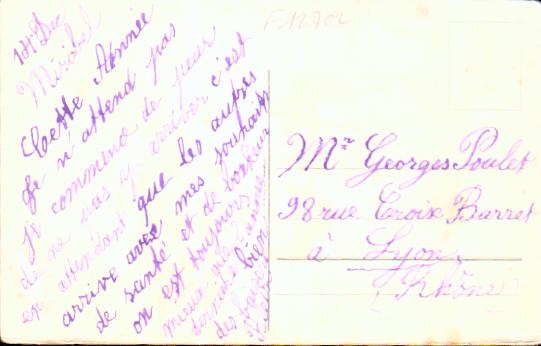 14 Dec
Miribel
Cette Année
je n attend pas
je commence de peur
de ne pas y arriver c'est
en attendant que les autres
arrive avec mes souhaits
de santé et de bonheur
on est toujours
mieux que l'année
dernière bien
des baisers
F 12702
Mr Georges Poulet
98 rue Croix Barret
à Lyon
Rhône